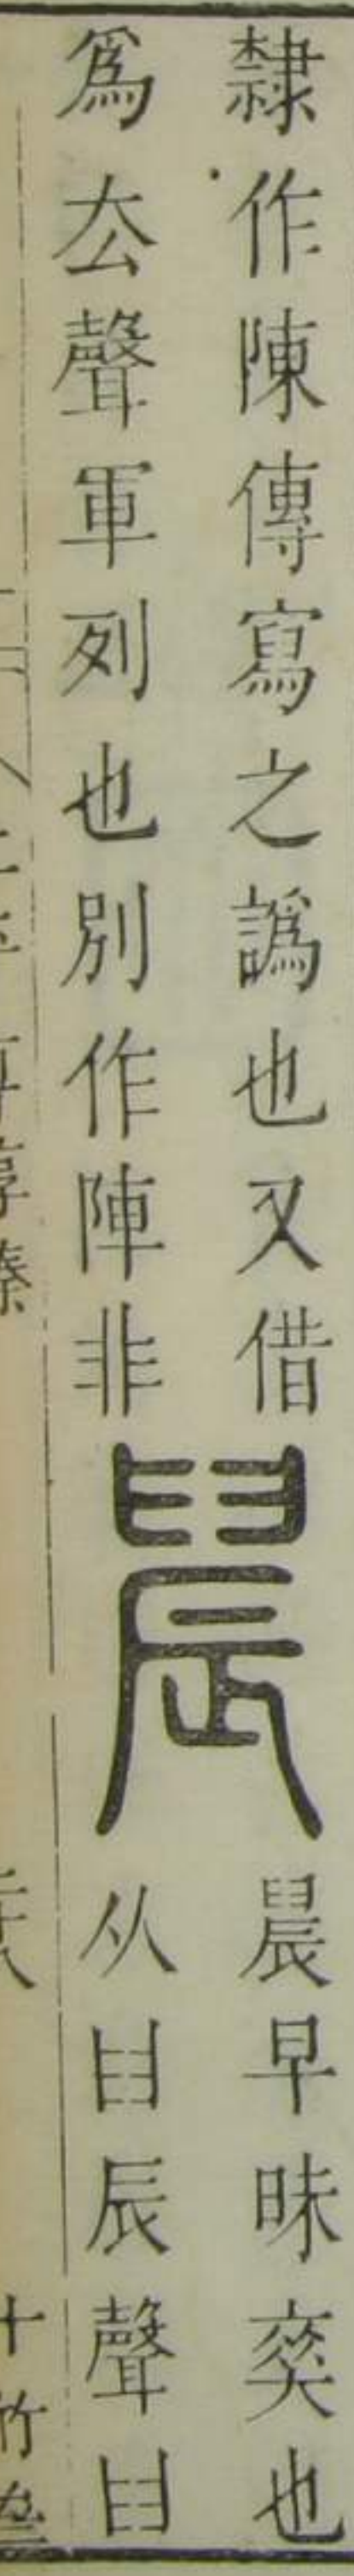 隸作陳傳寫之譌也又借
爲厺聲軍列也別作陣非
晨
晨早昧爽也
从𦥑辰聲𦥑